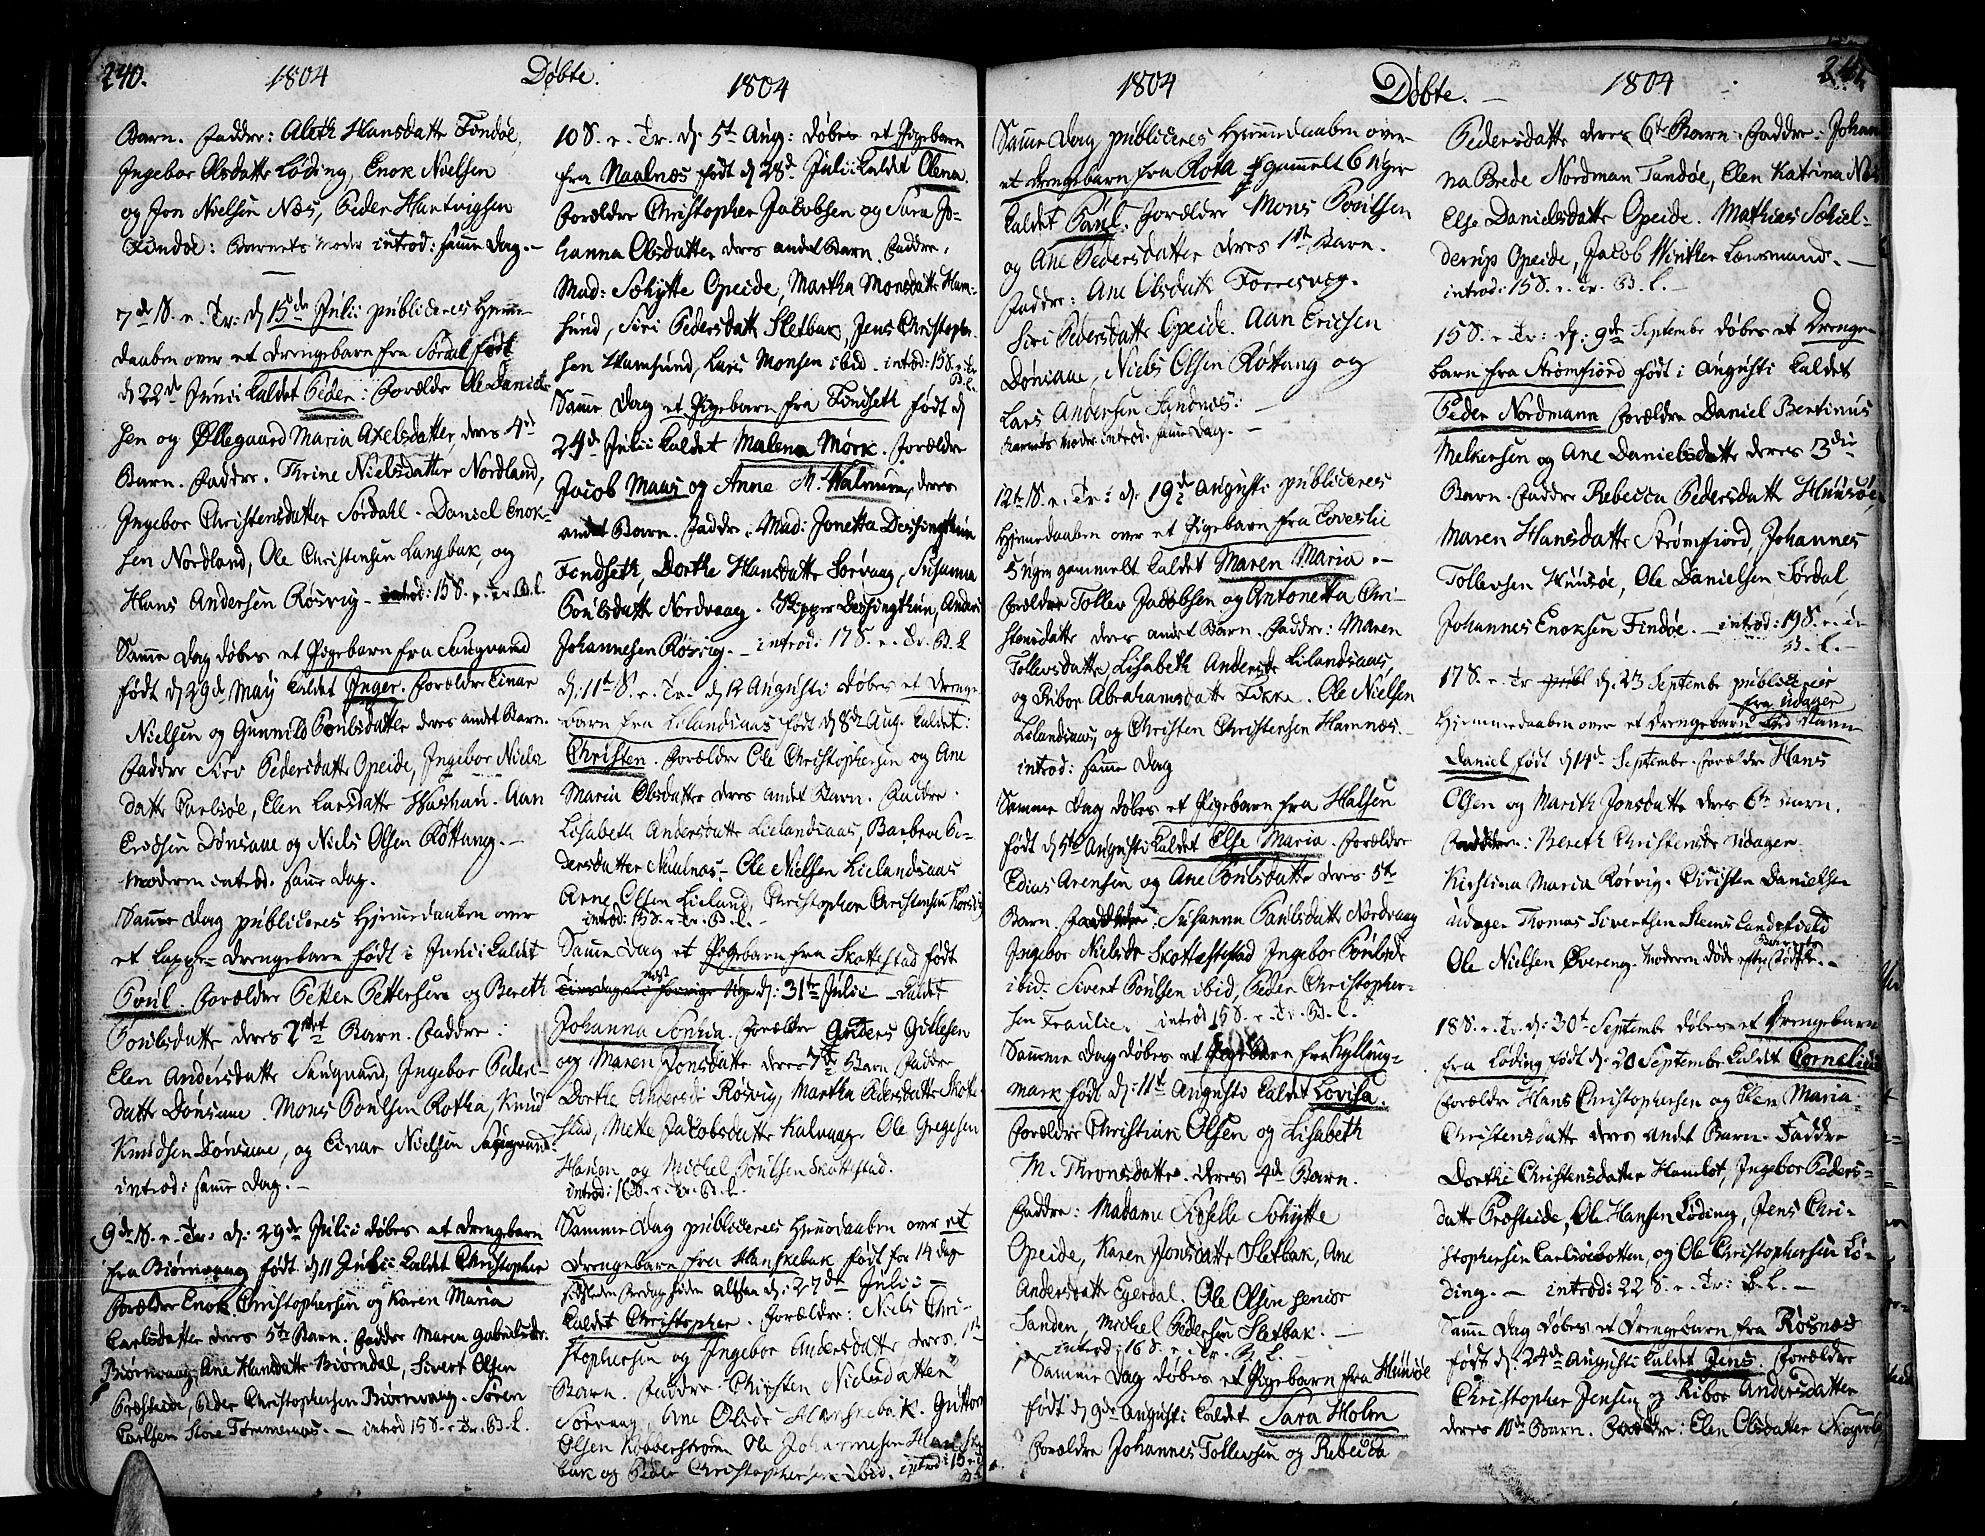 240.
1804
Døbte.
1804
Barn. Faddre: Aleth Hansdatter Findøe,
Ingebor Olsdatter Løding, Enok Nielsen
og Jon Nielsen Næs, Peder Hartvigsen
Findøe: Barnets Moder introd: samme Dag. -
7de S. e. Tr: d: 15de Julii publiceres Hjemme
daaben over et Drengebarn fra Sørdal født
d 22de Junii kaldet Peder: Forældre Ole Daniel-
sen og Øllegaard Maria Axelsdatter, deres 4de
Barn. Faddre. Thrine Nielsdatter Nordland,
Ingebor Christensdatter Sørdahl. Daniel Enok-
sen Nordland, Ole Christensen Langbak, og
Hans Andersen Røsvig - introd: 15 S. e. Tr. B. L.
Samme Dag døbes et Pigebarn fra Saugvand
født d 29de May kaldet Inger. Forældre Einar
Nielsen og Gunnild Poulsdatter deres andet Barn.
Faddre Siri Pedersdatter Opeide, Ingebor Niels
datter Karlsøe, Elen Larsdatter . Aan
Ericksen Dønsaue og Niels Olsen Røttang. -
Moderen introd. samme Dag.
Samme Dag publiceres Hjemmedaaben over
et Lappe-Drengebarn født i Junii kaldet
Poul. Forældre Petter Pettersen og Bereth
Poulsdatter deres Barn. Faddre:
Elen Andersdatter Saugvand, Ingebor Peders-
datter Dønsaue. Mons Poulsen Rotha, Knud
Knudsen Dønsaue, og Einar Nielsen Saugvand.
introd: samme Dag. -
9de S. e. Tr: d: 29de Julii døbes et Drengebarn
fra Biørnvaag født d 11 Julii kaldet Christopher
Forældre Enok Christophersen og Karen Maria
Carlsdatter deres 5te Barn. Faddre Maren Gabrielsdr.
Biørnvaag, Ane Hansdatter Biørndal, Sivert Olsen
Præsteide, Peder Christophersen Biørnvaag. Søren
Carlsen Store Tømmernæs. - introd 15 S. e. Tr. B. L.
10 S. e. Tr. d: 5te Aug: døbes et Pigebarn
fra Naalnæs født d 28de Julii kaldet Olena.
Forældre Christopher Jacobsen og Sara Jo-
hanna Olsdatter deres andet Barn. Faddre.
Mad: Schytte Opeide, Martha Monsdatter Ham-
sund, Siri Pedersdatter Sletbak, Jens Christopher-
sen Hamsund, Lars Monsen ibid. introd: 15 S. e. Tr.
B. L.
Samme Dag et Pigebarn fra Findseth født d
24de Julii kaldet Malena Mørk. Forældre
Jacob Maas og Anne M. Walnum, deres
andet Barn. Faddre. Mad: Jonetta Dessingthun
Findseth, Dorthe Hansdatter Sørvaag, Susanna
Poulsdatter Nordvaag. Skipper Dessingthun, Anders
Johannesen Røsvig. - introd: 17 S. e. Tr. B. L
d: 11te S. e. Tr. d 12 Augusti døbes et Drenge-
barn fra Lilandsaas født d 8de Aug. kaldet:
Christen. Forældre Ole Christophersen og Ane
Maria Olsdatter deres andet Barn. Faddre.
Lisabeth Andersdatter Lielandsaas, Barbra Pe-
dersdatter Naalnæs. Ole Nielsen Lielandsaas
Arne Olsen Lieland, Christopher Christensen
introd: 15 S. e. Tr. B. L. -
Samme Dag et Pigebarn fra Skottestad født
Tirsdag i forrige Uge d: 31te Julii - kaldet
Johanna Sophia. Forældre Anders Gullesen
og Maren Jonsdatter deres 7de Barn Faddre
Dorthe Andersdr Røsvig, Martha Pedersdatter Skotte-
stad, Mette Jacobsdatter Kalvaag. Ole Gregesen
og Michel Poulsen Skottestad.
introd: 16 S. e. Tr. B. L.
Samme Dag publiceres Hjemmedaaben over et
Drengebarn fra Hanskebak født for 14 Dage
siden altsaa d: 27de Julii -
kaldet Christopher. Forældre: Niels Chri-
stophersen og Ingebor Andersdatter deres 1te
Barn. Faddre. Chirsten Nielsdatter
Sørvaag, Ane Olsdr Hanskebak. Guttorm
Olsen Kobberstrøm Ole Johannesen Hanske
bak og Peder Christophersen ibid. introd: 15 e. Tr
B. L.
1804
Døbte. -
1804
241.
Samme Dag publiceres Hjemmedaaben over
et Drengebarn fra Rota gammelt 6 Uger
kaldet Poul. Forældre Mons Poulsen
og Ane Pedersdatter deres 1te Barn.
Faddre: Ane Olsdatter Forresvig.
Siri Pedersdatter Opeide. Aan Ericsen
Dønsaue, Niels Olsen Røttang og
Lars Andersen Sandnæs: -
Barnets Moder introd. samme Dag. -
12te S. e. Tr: d: 19de Augusti publiceres
Hjemmedaaben over et Pigebarn fra
5 Uger gammelt kaldet Maren Maria. -
Forældre Tollev Jacobsen og Antonetta Chri-
stensdatter deres andet Barn. Faddre: Maren
Tollevsdatter Lisabeth Andersdr Lilandsaas,
og Ribor Abrahamsdatter . Ole Nielsen
Lilandsaas, og Christen Christensen Hamnæs. -
introd: samme Dag
Samme Dag døbes et Pigebarn fra Halsen
født d 5te Augusti kaldet Else Maria. Forældre
Edias Arensen og Ane Poulsdatter deres 5te
Barn. Faddre: Susanna Poulsdatter Nordvaag
Ingebor Nielsdr Skottestad Ingebor Poulsdr
ibid. Sivert Poulsen ibid, Peder Christopher-
sen . introd 15 S. e. Tr. B. L.
Samme Dag døbes et Pigebarn fra Kylling-
mark født d: 11te Augusti kaldet Lovisa.
Forældre Christian Olsen og Lisabeth
M. Thronsdatter. deres 4de Barn.
Faddre: Madame Sicelle Schytte
Opeide, Karen Jonsdatter Sletbak, Ane
Andersdatter Egerdal. Ole Olsen senior
Sanden, Michel Pedersen Sletbak. -
introd: 16 S. e. Tr. B. L. -
Samme Dag døbes et Pigebarn fra Huusøe
født d 9de Augusti kaldet Sara Holm
Forældre Johannes Tollevsen og Rebecca
Pedersdatter deres 6te Barn. Faddre. Johan
na Brede Nordman Tandøe, Elen Katrina Næs
Else Danielsdatter Opeide. Mathias Schiel-
derup Opeide, Jacob Winther Lensmand. -
introd: 15 S. e. Tr. B. L. -
15 S. e. Tr: d: 9de Septembr døbes et Drenge-
barn fra Strømfiord født i Augusti kaldet
Peder Nordmann Forældre Daniel Bertinus
Melkersen og Ane Danielsdatter deres 3die
Barn. Faddre Rebecca Pedersdatter Huusøe,
Maren Hansdatter Strømfiord, Johannes
Tollevsen Huusøe, Ole Danielsen Sørdal,
Johannes Enoksen Findøe. - introd: 19 S. e. Tr
B. L. -
17 S. e. Tr publ d: 23 Septembr publiceres
fra Udager
Hjemmedaaben over et Drengebarn ved Navn
Daniel født d 14de Septembr. Forældre Hans
Olsen og Marith Jonsdatter deres 6te Barn.
Faddere: Bereth Christensdr Udager.
Kirstina Maria Rørvig. Christen Danielsen
Udager Thomas Sivertsen
Ole Nielsen Øvereng. Moderen døde efter Barnets Fødsel. -
18 S. e. Tr. d: 30te Septembr døbes et Drengebarn
fra Løding født d: 20 Septembr kaldet Cornelius
Forældre Hans Christophersen og Elen Maria
Christensdatter deres andet Barn. Faddre
Dorthe Christensdatter Hamlot, Ingebor Peders-
datter Præsteide, Ole Hansen Løding, Jens Chri-
stophersen Carlsøebotten, og Ole Christophersen Lø-
ding. - introd: 22 S. e. Tr: B. L. -
Samme Dag døbes et Drengebarn fra Røsnæs
født d: 24de Augusti kaldet Jens. Forældre
Christopher Jensen og Ribor Andersdatter
deres 10de Barn. Faddre: Elen Olsdatter